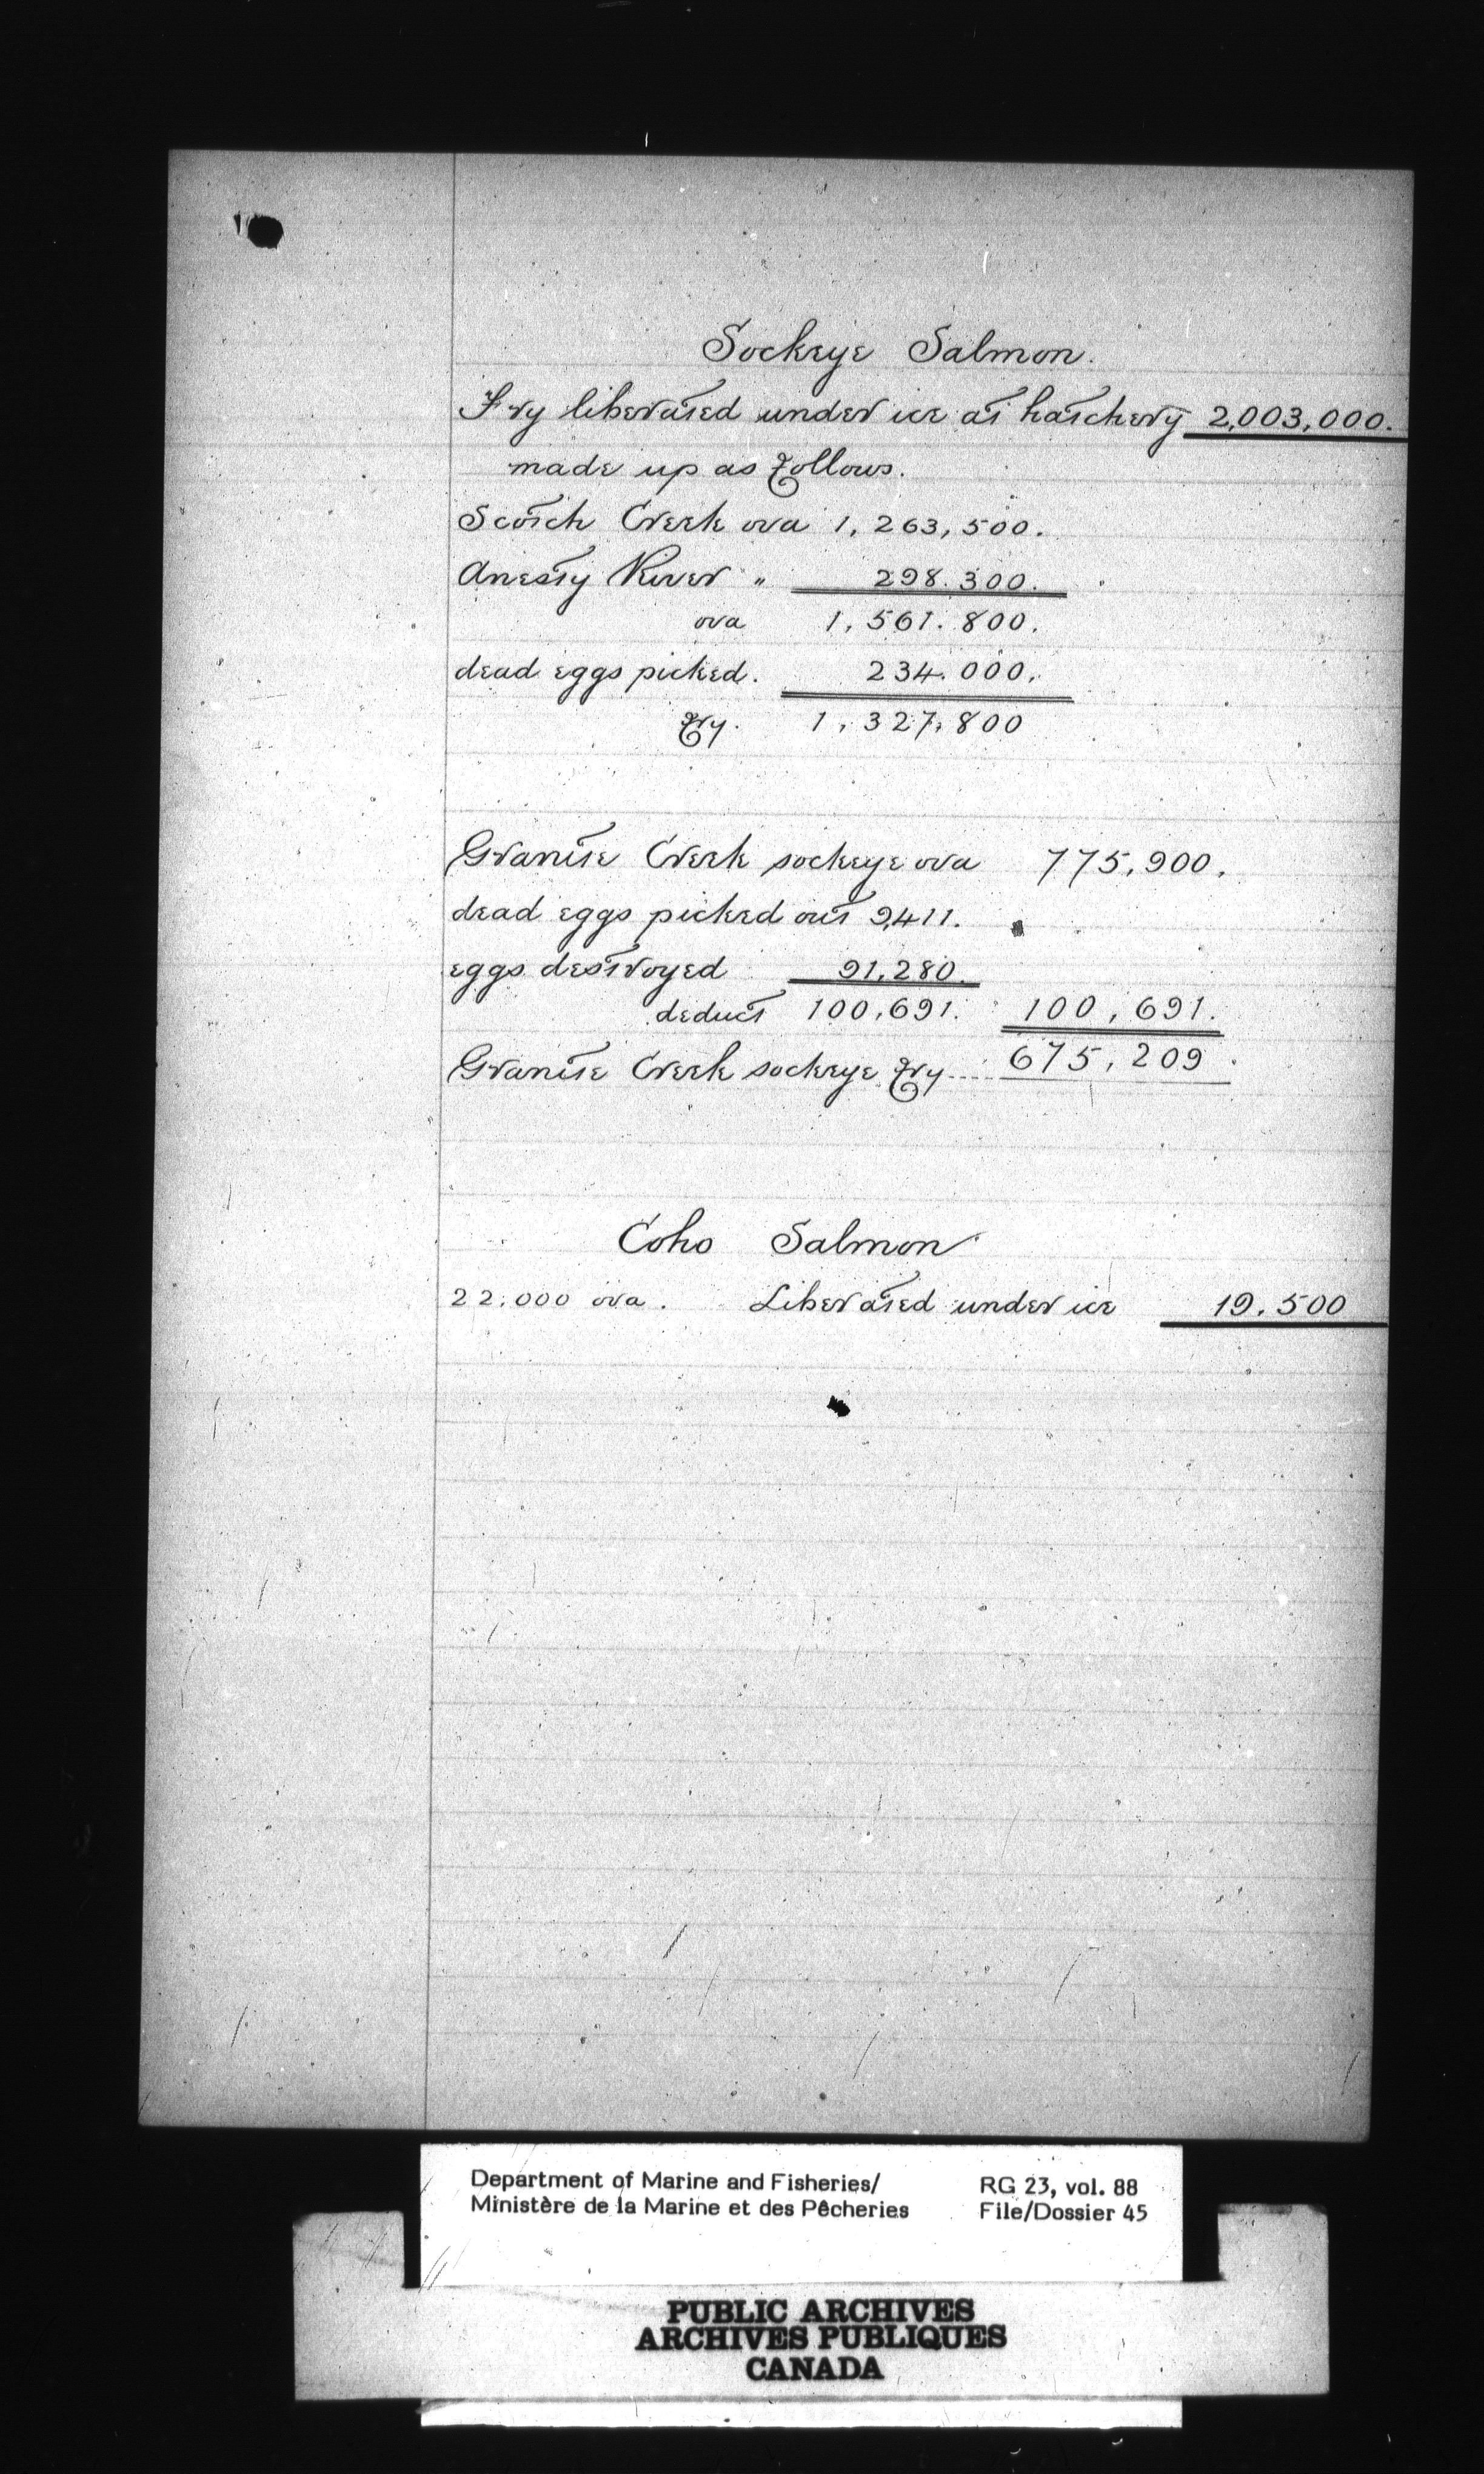 Sockeye Salmon.
Fry liberated under ice at hatchery 2,003,000.
made up as follows.
Scotch Creek ova 1,263,500.
Anesty River " 298.300.
ova 1,561.800.
dead eggs picked. 234.000.
fry. 1,327,800
Granite Creek sockeye ova 775,900.
dead eggs picked out 9,411.
eggs destroyed 91,280.
deduct 100,691. 100,691.
Granite Creek sockeye fry 675,209.
Coho Salmon
22.000 ova. Liberated under ice 19.500
Department of Marine and Fisheries/ RG 23, vol. 88
Ministère de la Marine et des Pêcheries File/Dossier 45
PUBLIC ARCHIVES
ARCHIVES PUBLIQUES
CANADA